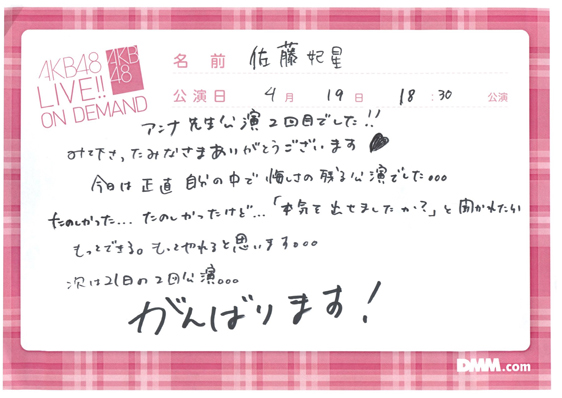 AKB48
LIVE!!
ON DEMAND
AKB
48
名前 佐藤妃星
公演日 4月 19日 18:30 公演
アンナ先生公演2回目でした!!
みて下さったみなさまありがとうございます♥
今日は正直自分の中で悔しさの残る公演でした...
たのしかった... たのしかったけど...「本気を出せましたか?」と聞かれたら
もっとできる。もっとやれると思います...
次は21日の2回公演...
がんばります!
DMM.com